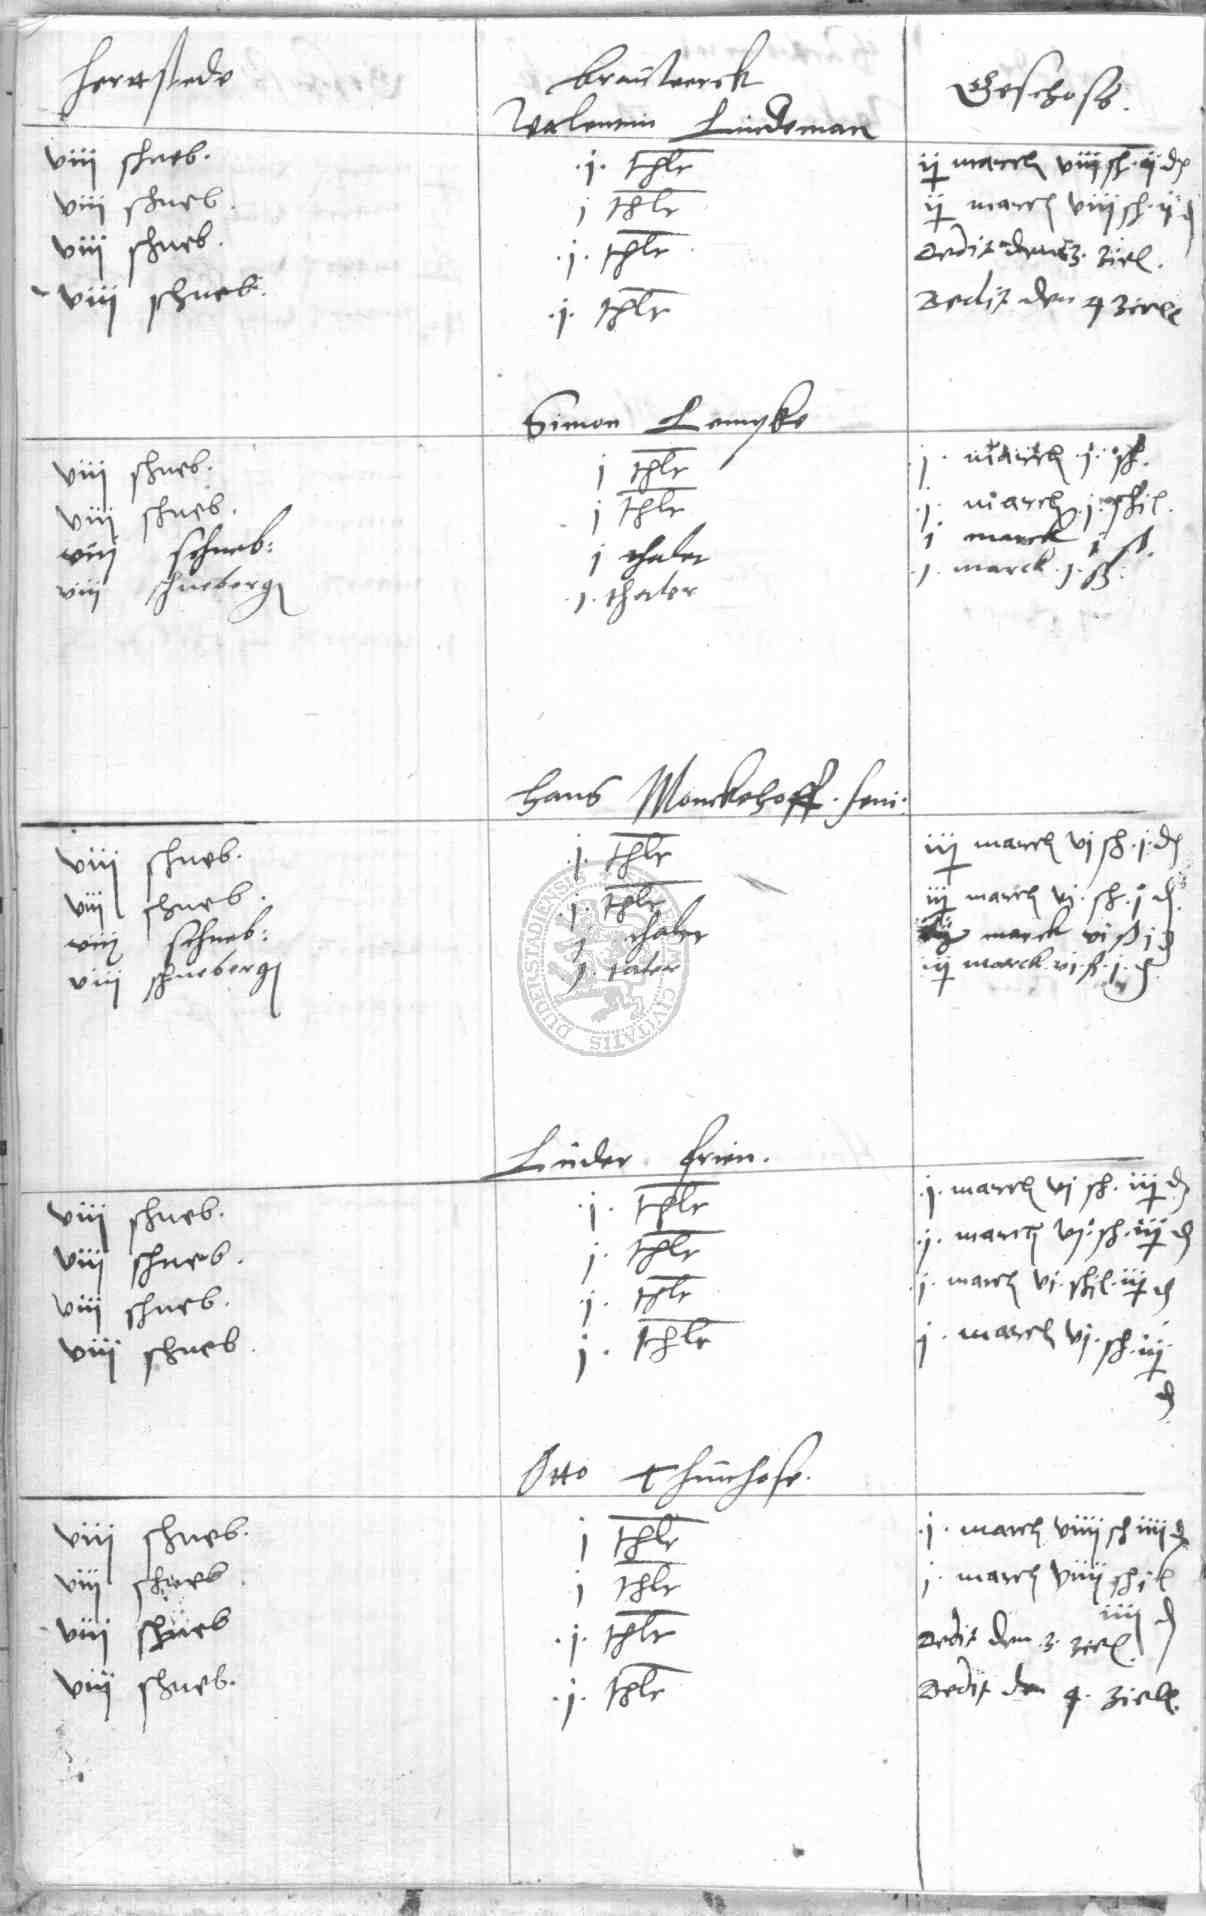 Herttstede brauwerck Geschoß.
Valentin Lindeman
viii schneb. .j. thlr ij marck viij sch. ij d
viii schneb. j thlr ij marck viij sch. ij d
viii schneb. .j. thlr Dedit den 3. Ziel.
viii schneb. .j. thlr Dedit den 4 Ziell
Simon Lemyke
viii schneb. j thlr .j. marck .j. sh.
viii schneb. j thlr .j. marck .j. schil.
viii schneb: j thaler j marck j ß.
viii schneberg .j. thaler .j. marck .j. ß.
Hans Monckehoff. seni:
viii schneb. .j. thlr iij marck vj sch. j. d
viii schneb. j. thlr iij marck vj. sch. j d.
viii schneb: j thaler marck vi ß j d
viii schneberg j. taler iij marck vi ß. j. d
Lüder frien.
viii schneb. .j. thlr .j. marck vj sch. iij d
viii schneb. j. thlr .j. marck vj. sch. iij d
viii schneb. .j. thlr .j. marck vj. schil. iij d
viii schneb. j. thlr j. marck vj. sch. iij.
d
Otto Thünhose.
viii schneb. j thlr .j. marck viiij sch iiij d
viii schneb. j thlr j. marck viiij schil
iiij d
viii schneb .j. thlr Dedit den .3. Ziel.
viii schneb. .j. thlr Dedit den 4. Ziell.
DUDERSTADIENSIS CIVITATIS